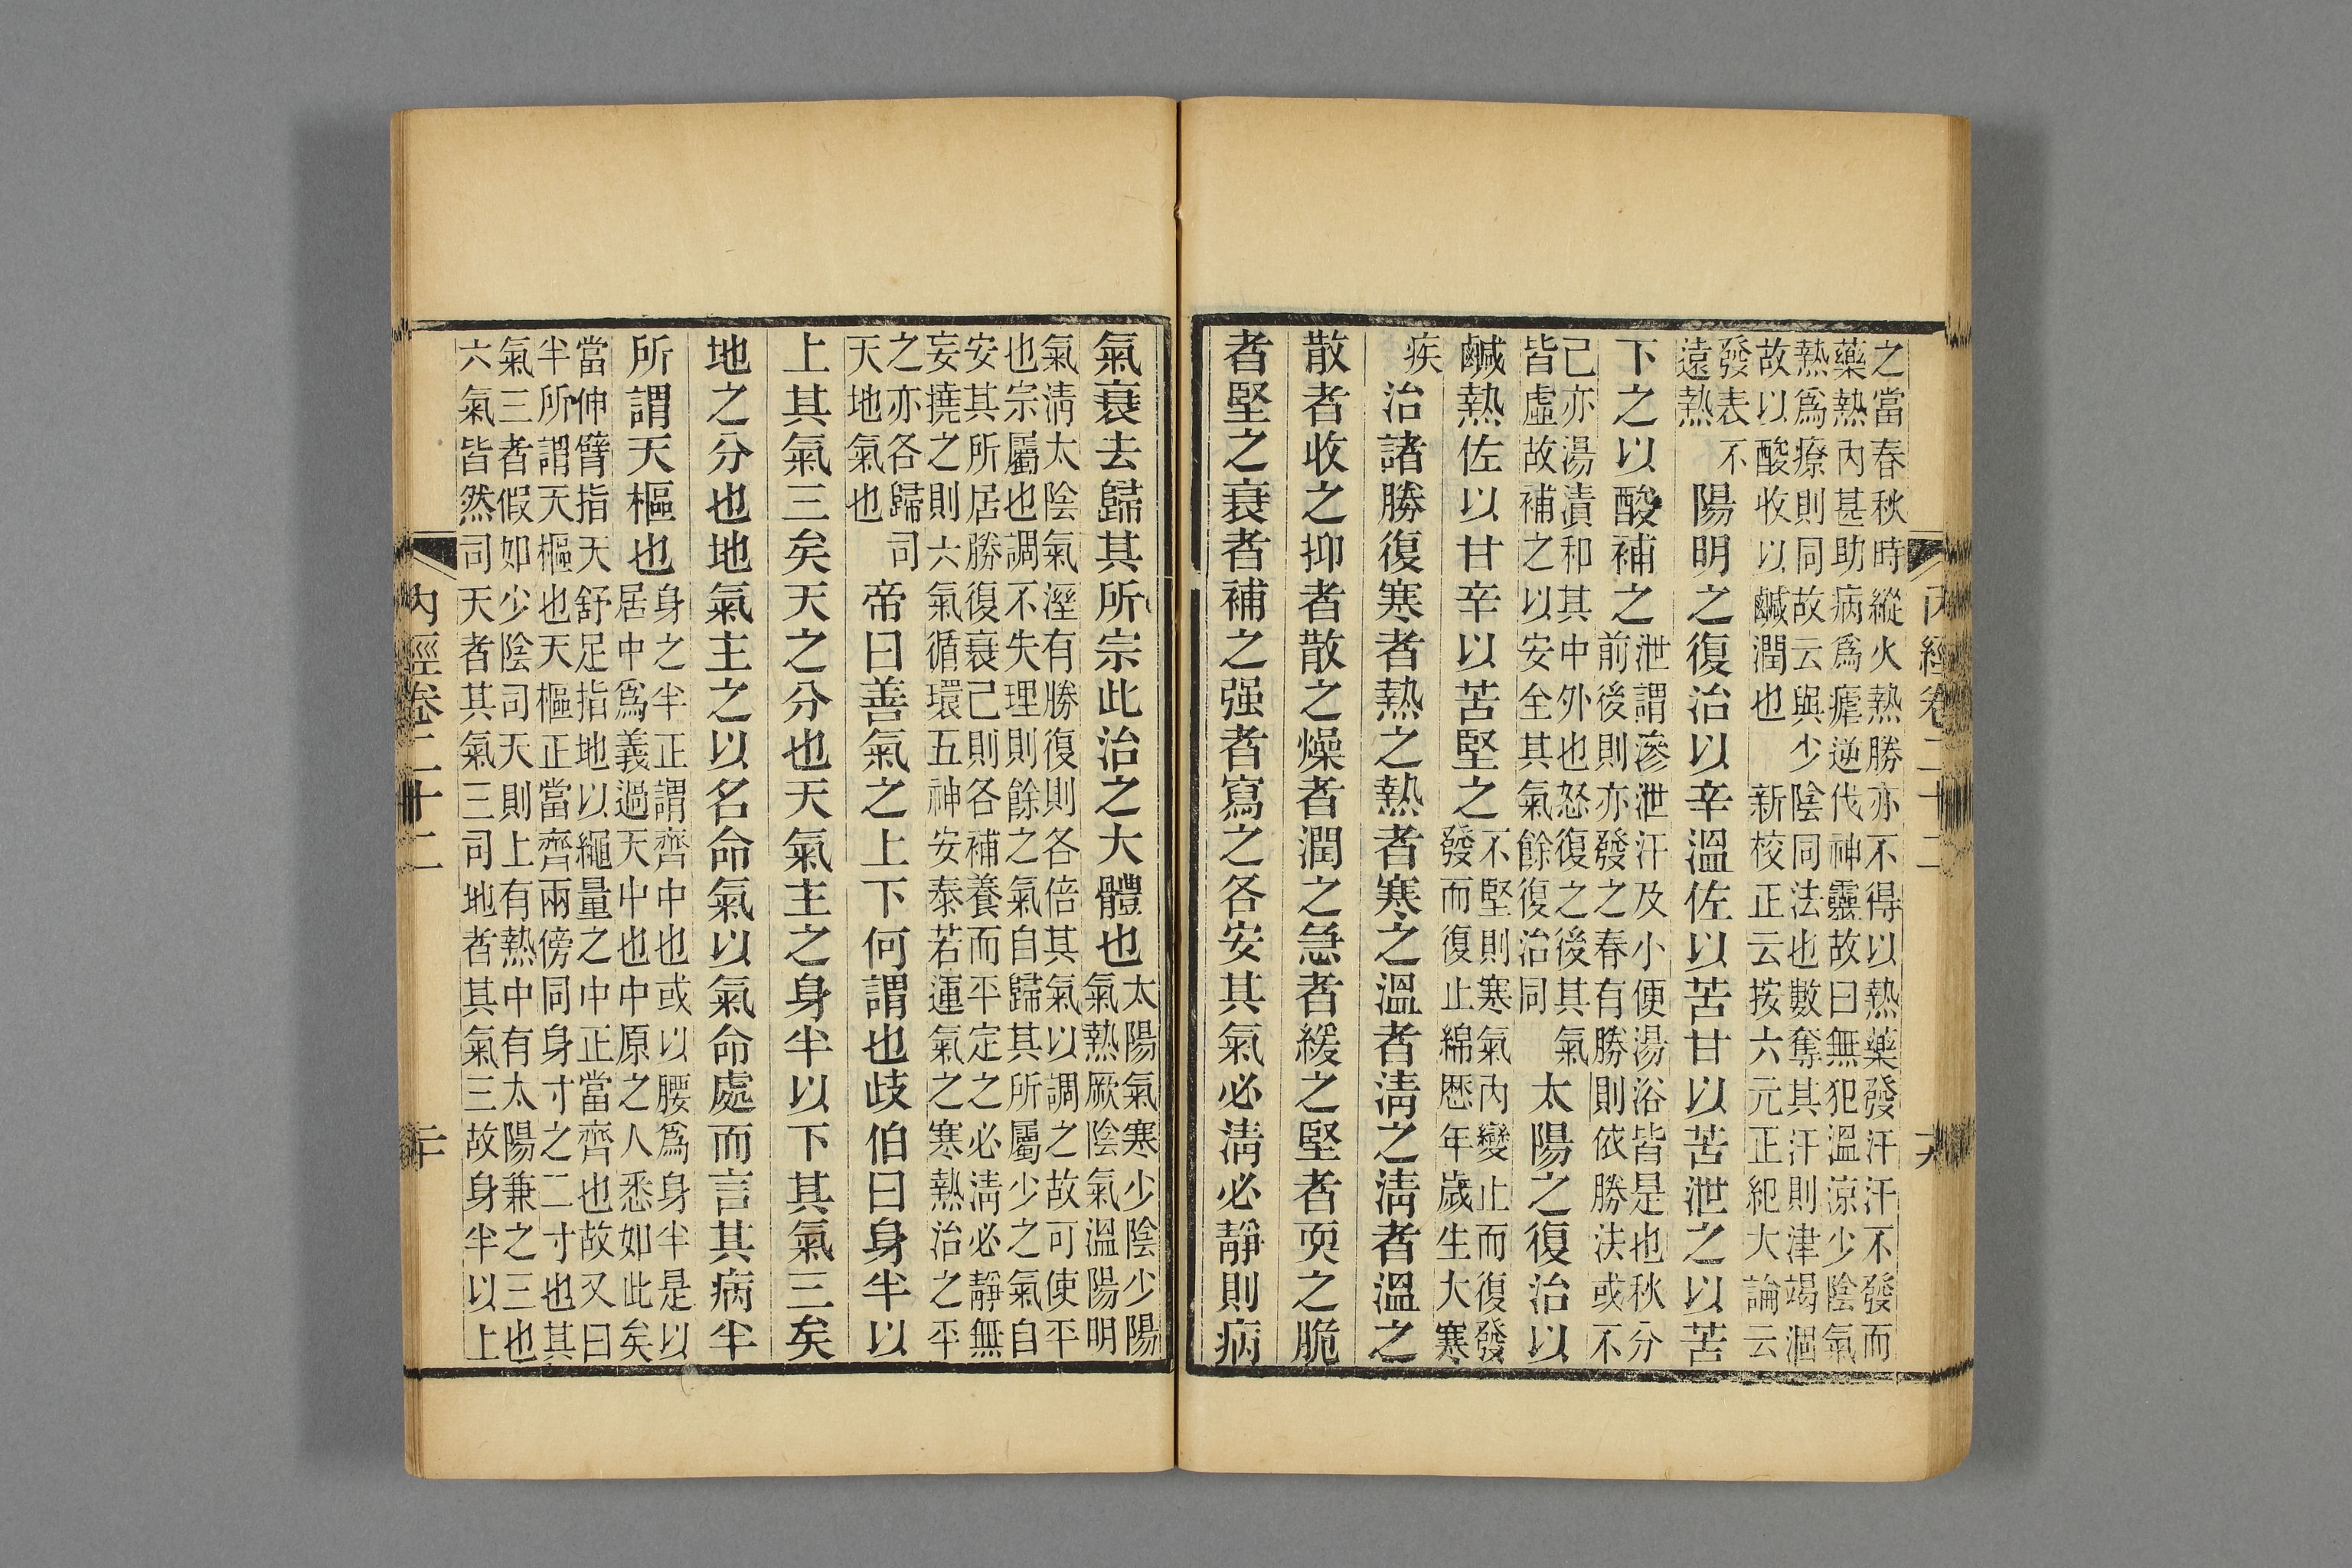 內經卷二十二
十九
之當春秋時縱火熱勝亦不得以熱藥發汗汗不發而
藥熱內甚助病爲瘧逆伐神靈故曰無犯溫涼少陰氣
熱爲療則同故云與少陰同法也數奪其汗則津竭涸
故以酸收以鹹潤也 新校正云按六元正紀大論云
發表不
遠熱
陽明之復治以辛溫佐以苦甘以苦泄之以苦
下之以酸補之
泄謂滲泄汗及小便湯浴皆是也秋分
前後則亦發之春有勝則依勝法或不
己亦湯漬和其中外也怒復之後其氣
皆虛故補之以安全其氣餘復治同
太陽之復治以
鹹熱佐以甘辛以苦堅之
不堅則寒氣內變止而復發
發而復止綿歷年歲生大寒
疾
治諸勝復寒者熱之熱者寒之溫者淸之淸者溫之
散者收之抑者散之燥者潤之急者緩之堅者耎之脆
者堅之衰者補之强者寫之各安其氣必淸必靜則病
氣衰去歸其所宗此治之大體也
太陽氣寒少陰少陽
氣熱厥陰氣溫陽明
氣淸太陰氣溼有勝復則各倍其氣以調之故可使平
也宗屬也調不失理則餘之氣自歸其所屬少之氣自
安其所居勝復衰己則各補養而平定之必淸必靜無
妄撓之則六氣循環五神安泰若運氣之寒熱治之平
之亦各歸司
天地氣也
帝曰善氣之上下何謂也歧伯曰身半以
上其氣三矣天之分也天氣主之身半以下其氣三矣
地之分也地氣主之以名命氣以氣命處而言其病半
所謂天樞也
身之半正謂齊中也或以腰爲身半是以
居中爲義過天中也中原之人悉如此矣
當伸臂指天舒足指地以繩量之中正當齊也故又曰
半所謂天樞也天樞正當齊兩傍同身寸之二寸也其
氣三者假如少陰司天則上有熱中有太陽兼之三也
六氣皆然司天者其氣三司地者其氣三故身半以上
內經卷二十二
二十